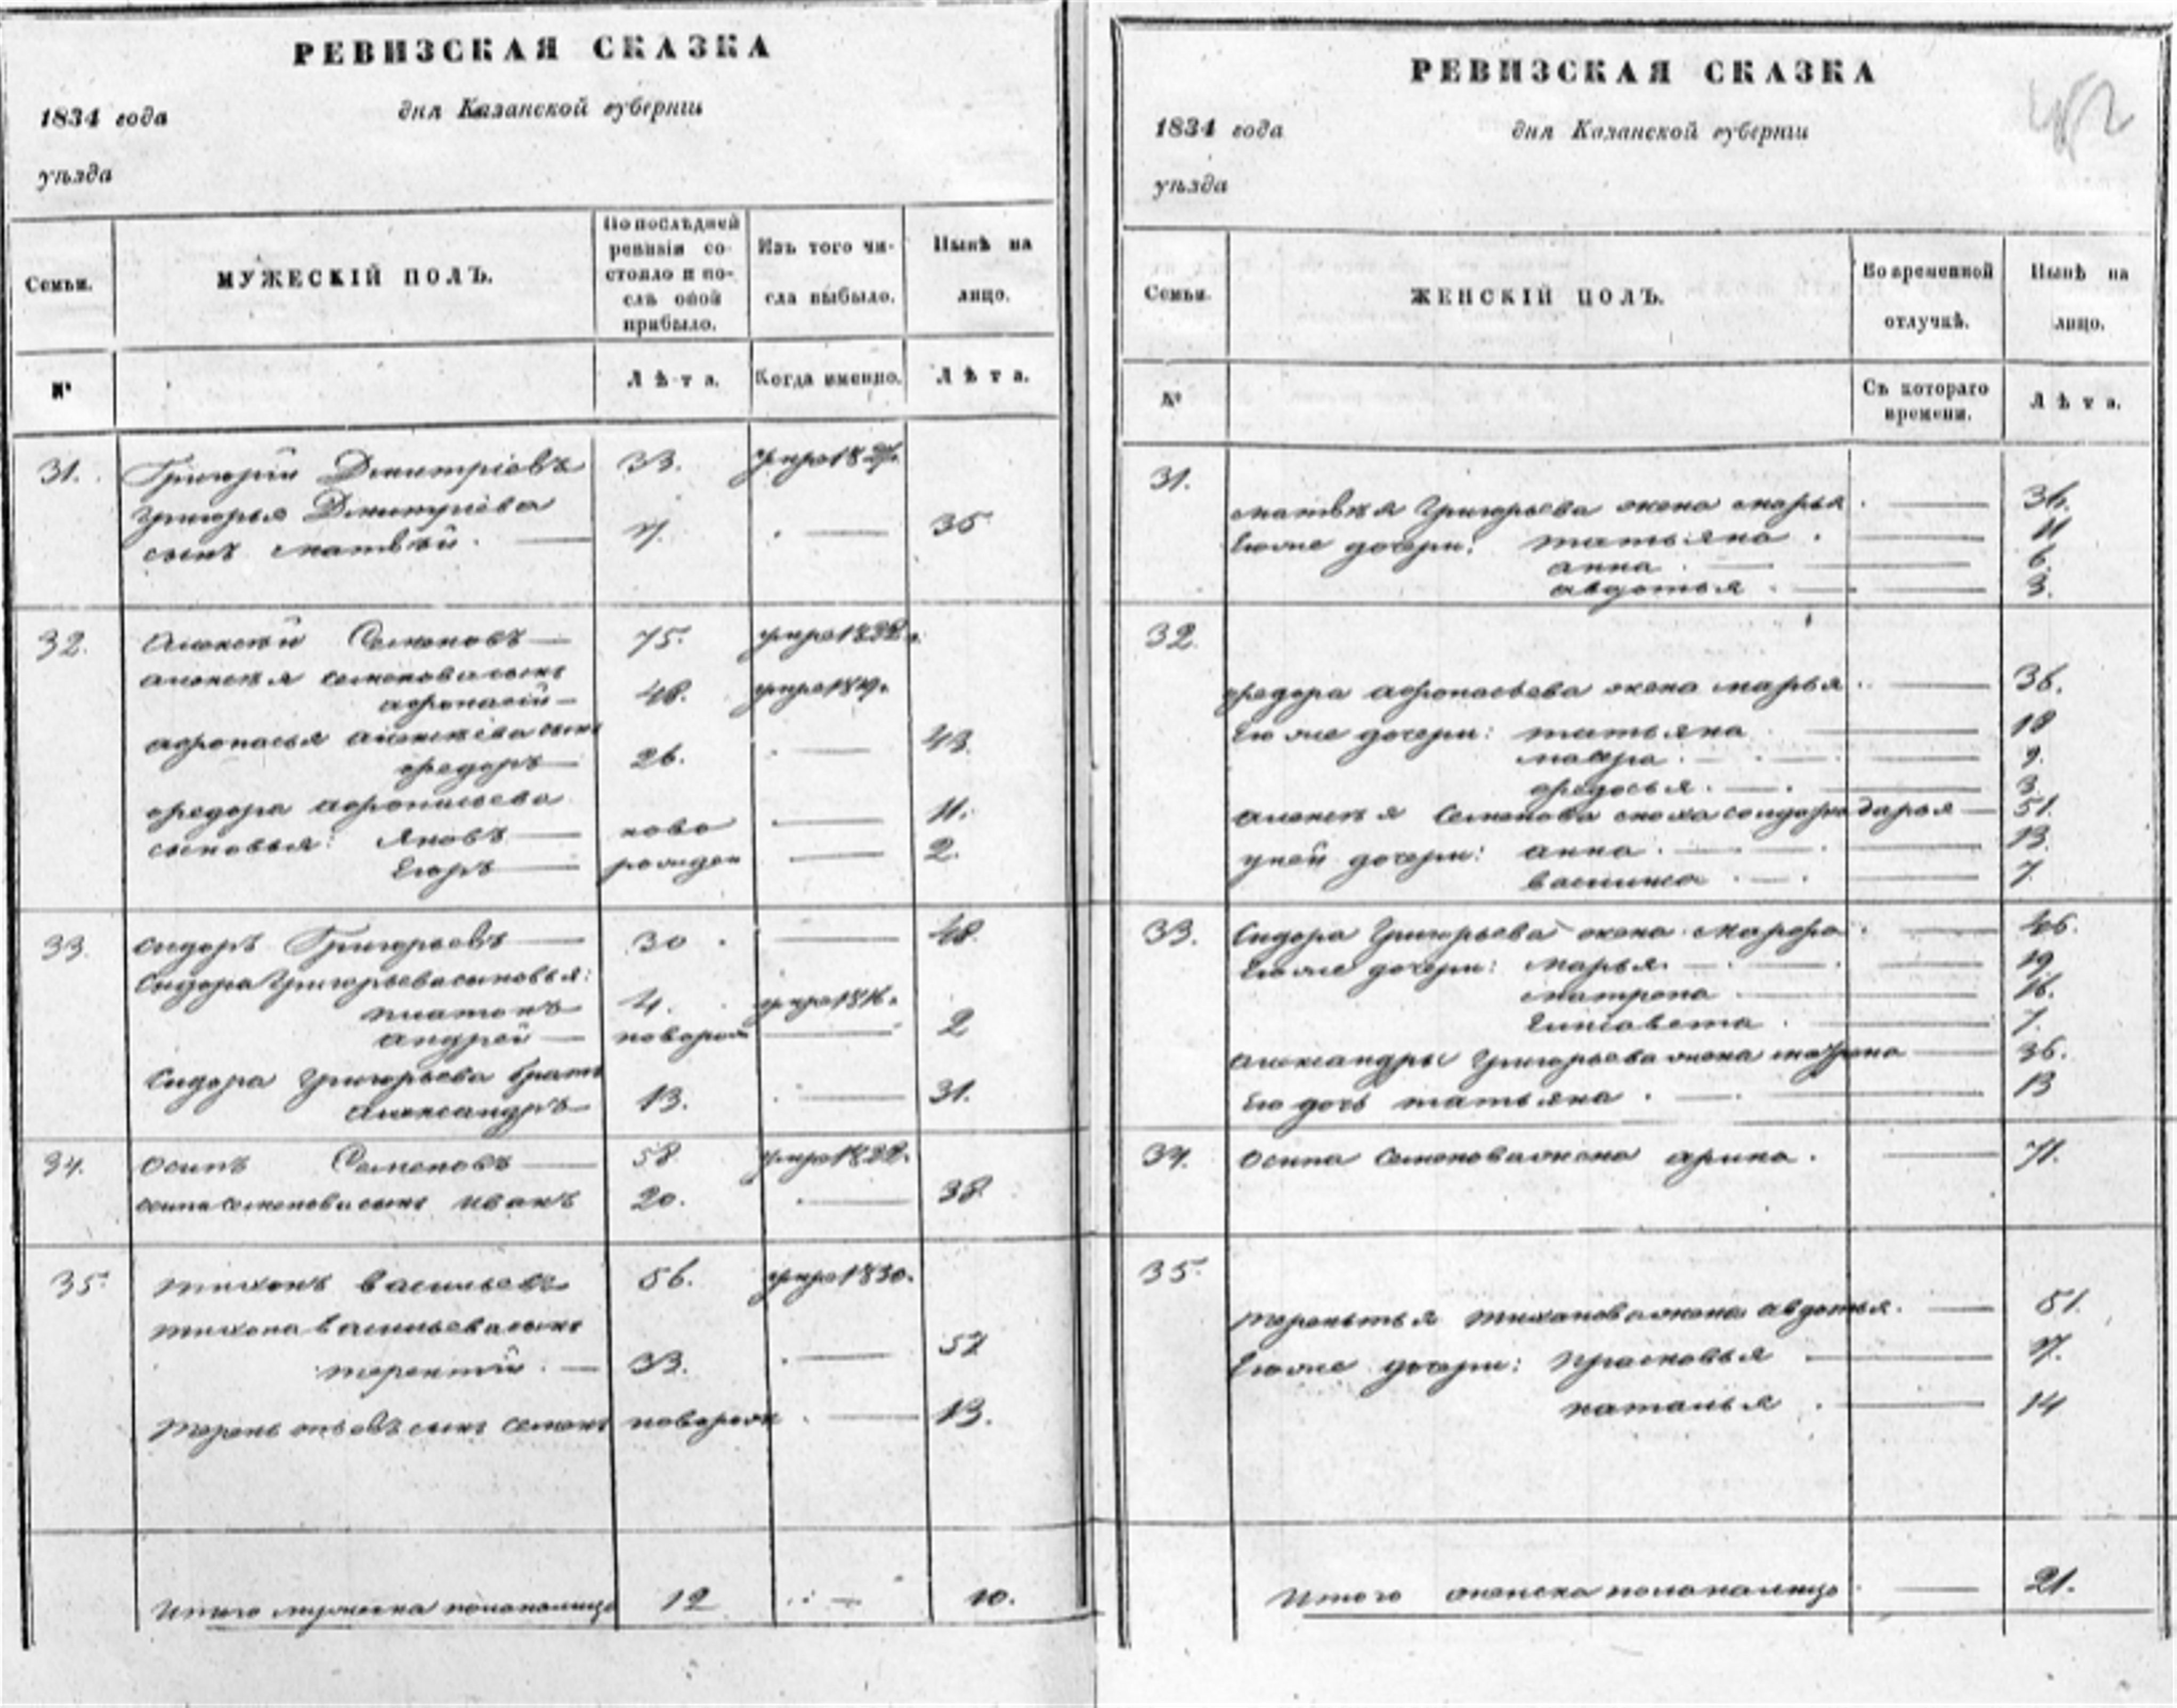 РЕВИЗСКАЯ СКАЗКА
1834 года дня Казанской губерніи
уѣзда
Семьи.
МУЖЕСКІЙ ПОЛЪ.
По послѣдней
ревизіи со-
стояло и по-
слѣ оной
прибыло.
Изъ того чи-
сла выбыло.
Нынѣ на
лицо.
№
Лѣта.
Когда именно.
Лѣта.
31. Григорій Дмитріевъ 33. умре 1827.
Григорья Дмитріева
сынъ матвѣй. 7. 35
32. Алексѣй Семеновъ 75. умре 1822.
алексѣя семенова сынъ
афонасій 48. умре 1819.
афонасья алексѣева сынъ
федоръ 26. 43.
федора афонасьева
сыновья: яковъ ново 11.
Егоръ рожден 2.
33. сидоръ Григорьевъ 30. 48.
Сидора Григорьева сыновья:
платонъ 4. умре 1816.
андрей новорож 2
Сидора Григорьева братъ
александръ 13. 31.
34. осипъ Семеновъ 58 умре 1822.
осипа семенова сынъ иванъ 20. 38
35. тихонъ васильевъ 56. умре 1830.
тихона васильева сынъ
терентій. 33. 51
терентьевъ сынъ семенъ новорож 13.
итого мужеска пола налицо 12 10.
РЕВИЗСКАЯ СКАЗКА
1834 года дня Казанской губерніи
уѣзда
Семьи.
ЖЕНСКІЙ ПОЛЪ.
Во временной
отлучкѣ.
Нынѣ на
лицо.
№
Съ котораго
времени.
Лѣта.
31.
матвѣя Григорьева жена марья. 36.
Его же дочери: татьяна. 11
анна 6.
авдотья 3.
32.
федора афонасьева жена марья 36.
Его же дочери: татьяна 18
мавра 9.
федосья. 3
алексѣя Семенова сноха солдатка дарья 51.
у ней дочери: анна. 13.
василиса 7
33. Сидора Григорьева жена марфа 46.
Его же дочери: марья. 19
матрена 16.
Елисавета 7.
александры Григорьева жена матрена 36.
Его дочь татьяна. 13
34. осипа семенова жена арина. 71.
35.
терентья тихонова жена авдотья. 51.
Его же дочери: прасковья 17.
наталья. 14
итого женска пола налицо 21.